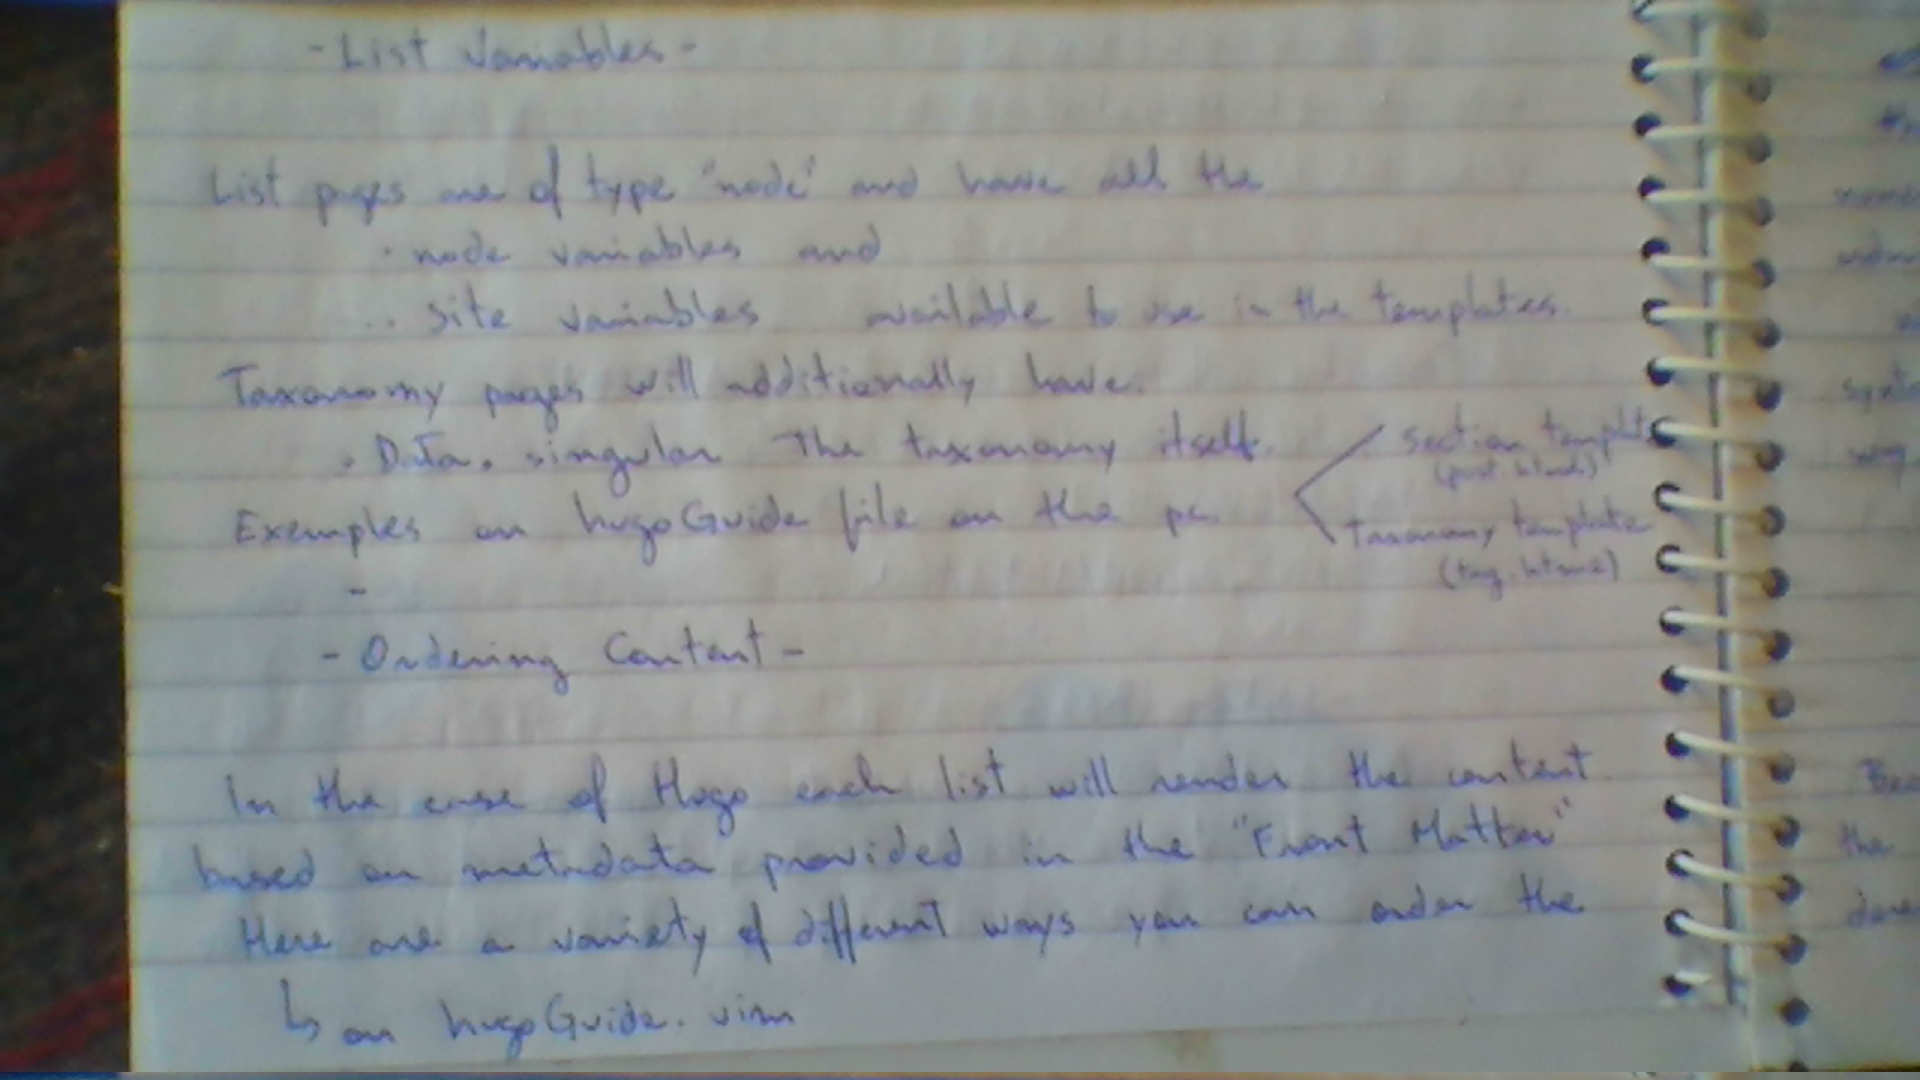 - List Variables -
List pages are of type 'node' and have all the
· node variables and
.. Site variables available to use in the templates.
Taxonomy pages will additionally have:
. Data. singular The taxonomy itself.
section template
(post.html)
Examples on hugoGuide file on the pc.
Taxonomy template
(tag.html)
-
- Ordering Content -
In the case of Hugo each list will render the content
based on metadata provided in the "Front Matter"
Here are a variety of different ways you can order the
↳ on hugoGuide.vim
the